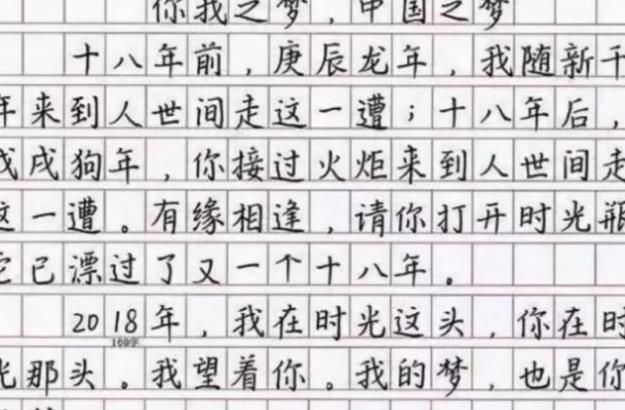 你我之梦,中国之梦
十八年前,庚辰龙年,我随新千
年来到人世间走这一遭;十八年后,
戊戌狗年,你接过火炬来到人世间走
这一遭。有缘相逢,请你打开时光瓶
它已漂过了又一个十八年。
2018年,我在时光这头,你在时
100字
光那头。我望着你。我的梦,也是你